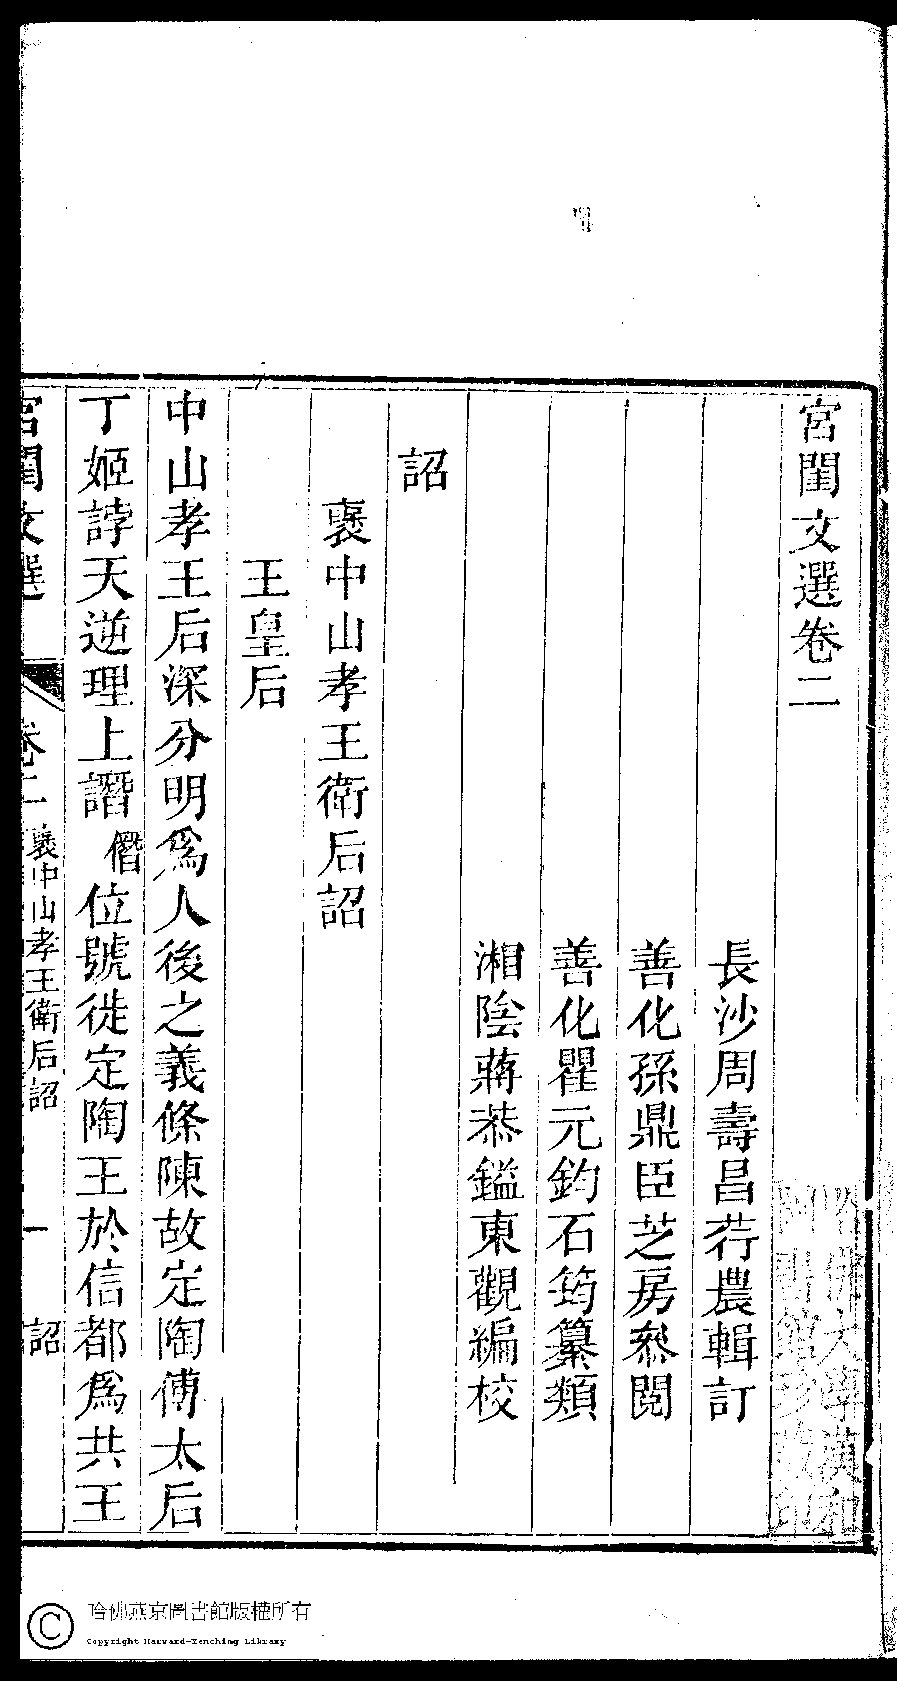 宮閨文選卷二
長沙周壽昌荇農輯訂
善化孫鼎臣芝房叅閱
善化瞿元鈞石筠纂類
湘陰蔣恭鎰東觀編校
詔
襃中山孝王衛后詔
王皇后
中山孝王后深分明爲人後之義條陳故定陶傅太后
丁姬誖天逆理上譖僭位號徙定陶王於信都爲共王
宮閨文選 卷二 襃中山孝王衛后詔 一 詔
哈佛大學漢和
圖書館珍藏印
哈佛燕京圖書館版權所有
Copyright Harvard-Yenching Library